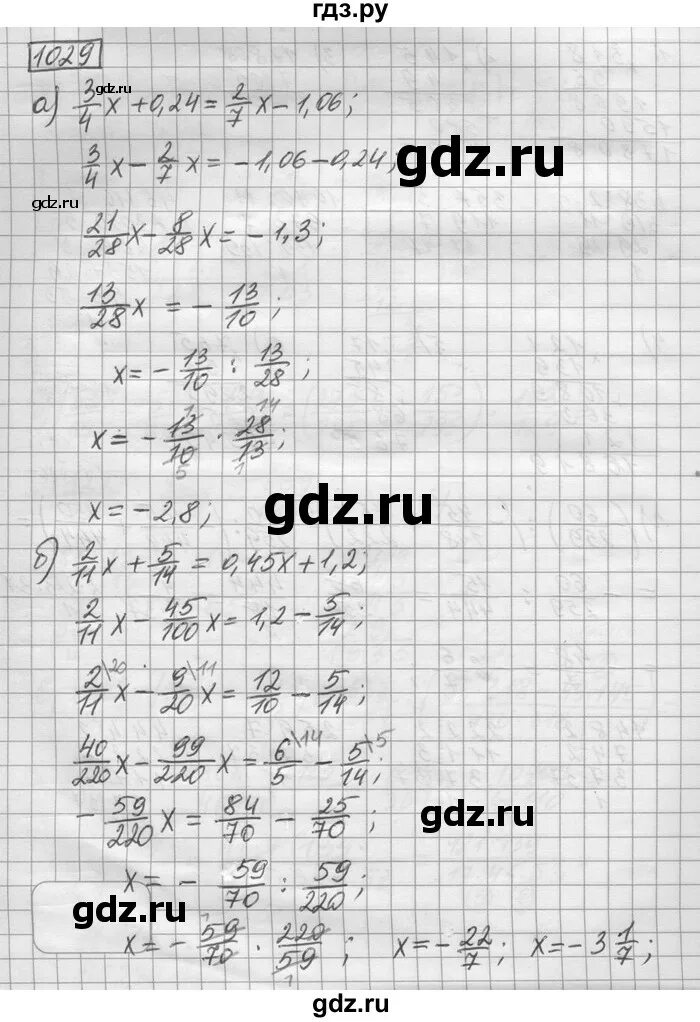 гдз.ру
1029
а) 3/4 x + 0,24 = 2/7 x - 1,06;
gdz.ru
3/4 x - 2/7 x = -1,06 - 0,24;
gdz.ru
gdz.ru
21/28 x - 8/28 x = -1,3;
13/28 x = -13/10;
x = -13/10 : 13/28;
1 14
x = -13/10 · 28/13;
5 1
gdz.ru
x = -2,8;
б) 2/11 x + 5/14 = 0,45x + 1,2;
2/11 x - 45/100 x = 1,2 - 5/14;
2\20/11 x - 9\11/20 x = 12/10 - 5/14;
40/220 x - 99/220 x = 6\14/5 - 5\5/14;
gdz.ru
-59/220 x = 84/70 - 25/70;
x = -59/70 : 59/220;
gdz.ru
1
x = -59/70 · 220/59; x = -22/7; x = -3 1/7;
1
gdz.ru